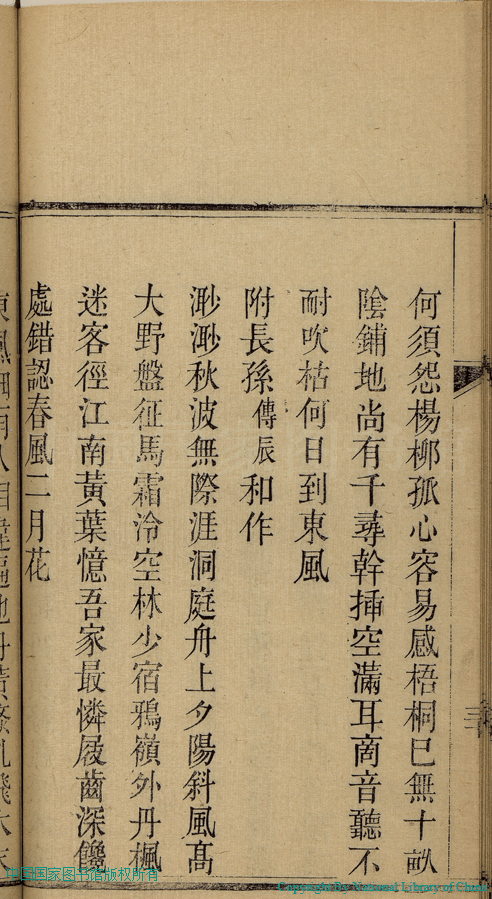 何須怨楊柳孤心容易感梧桐已無十畝
陰鋪地尚有千尋幹挿空滿耳商音聽不
耐吹枯何日到東風
附長孫傳辰和作
渺渺秋波無際涯洞庭舟上夕陽斜風高
大野盤征馬霜冷空林少宿鴉嶺外丹楓
迷客徑江南黃葉憶吾家最憐屐齒深巉
處錯認春風二月花
中国国家图书馆版权所有
Copyright By National Library of China